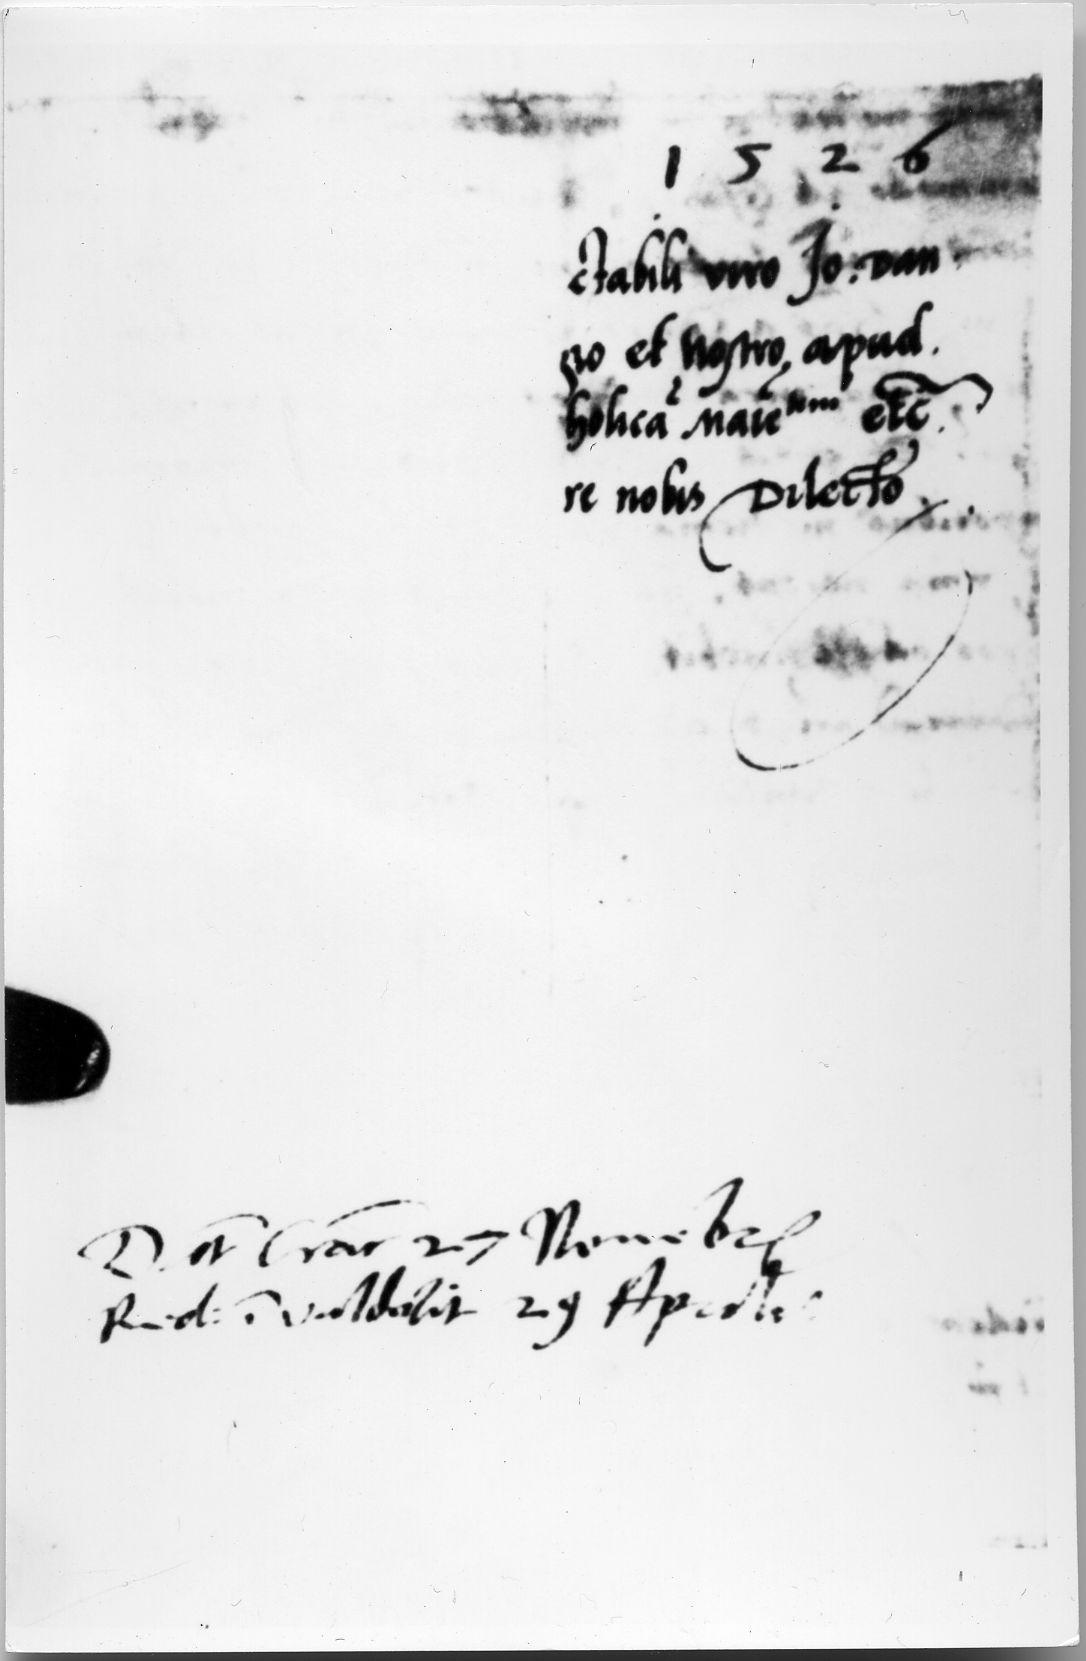 1526
ctabili viro Jo. Dan
no et nostro apud
holicā Maiētem etc̄.
re nobis Dilecto
Dat Crac 27 Novebr
Red: ī valdolit 29 Aprilis